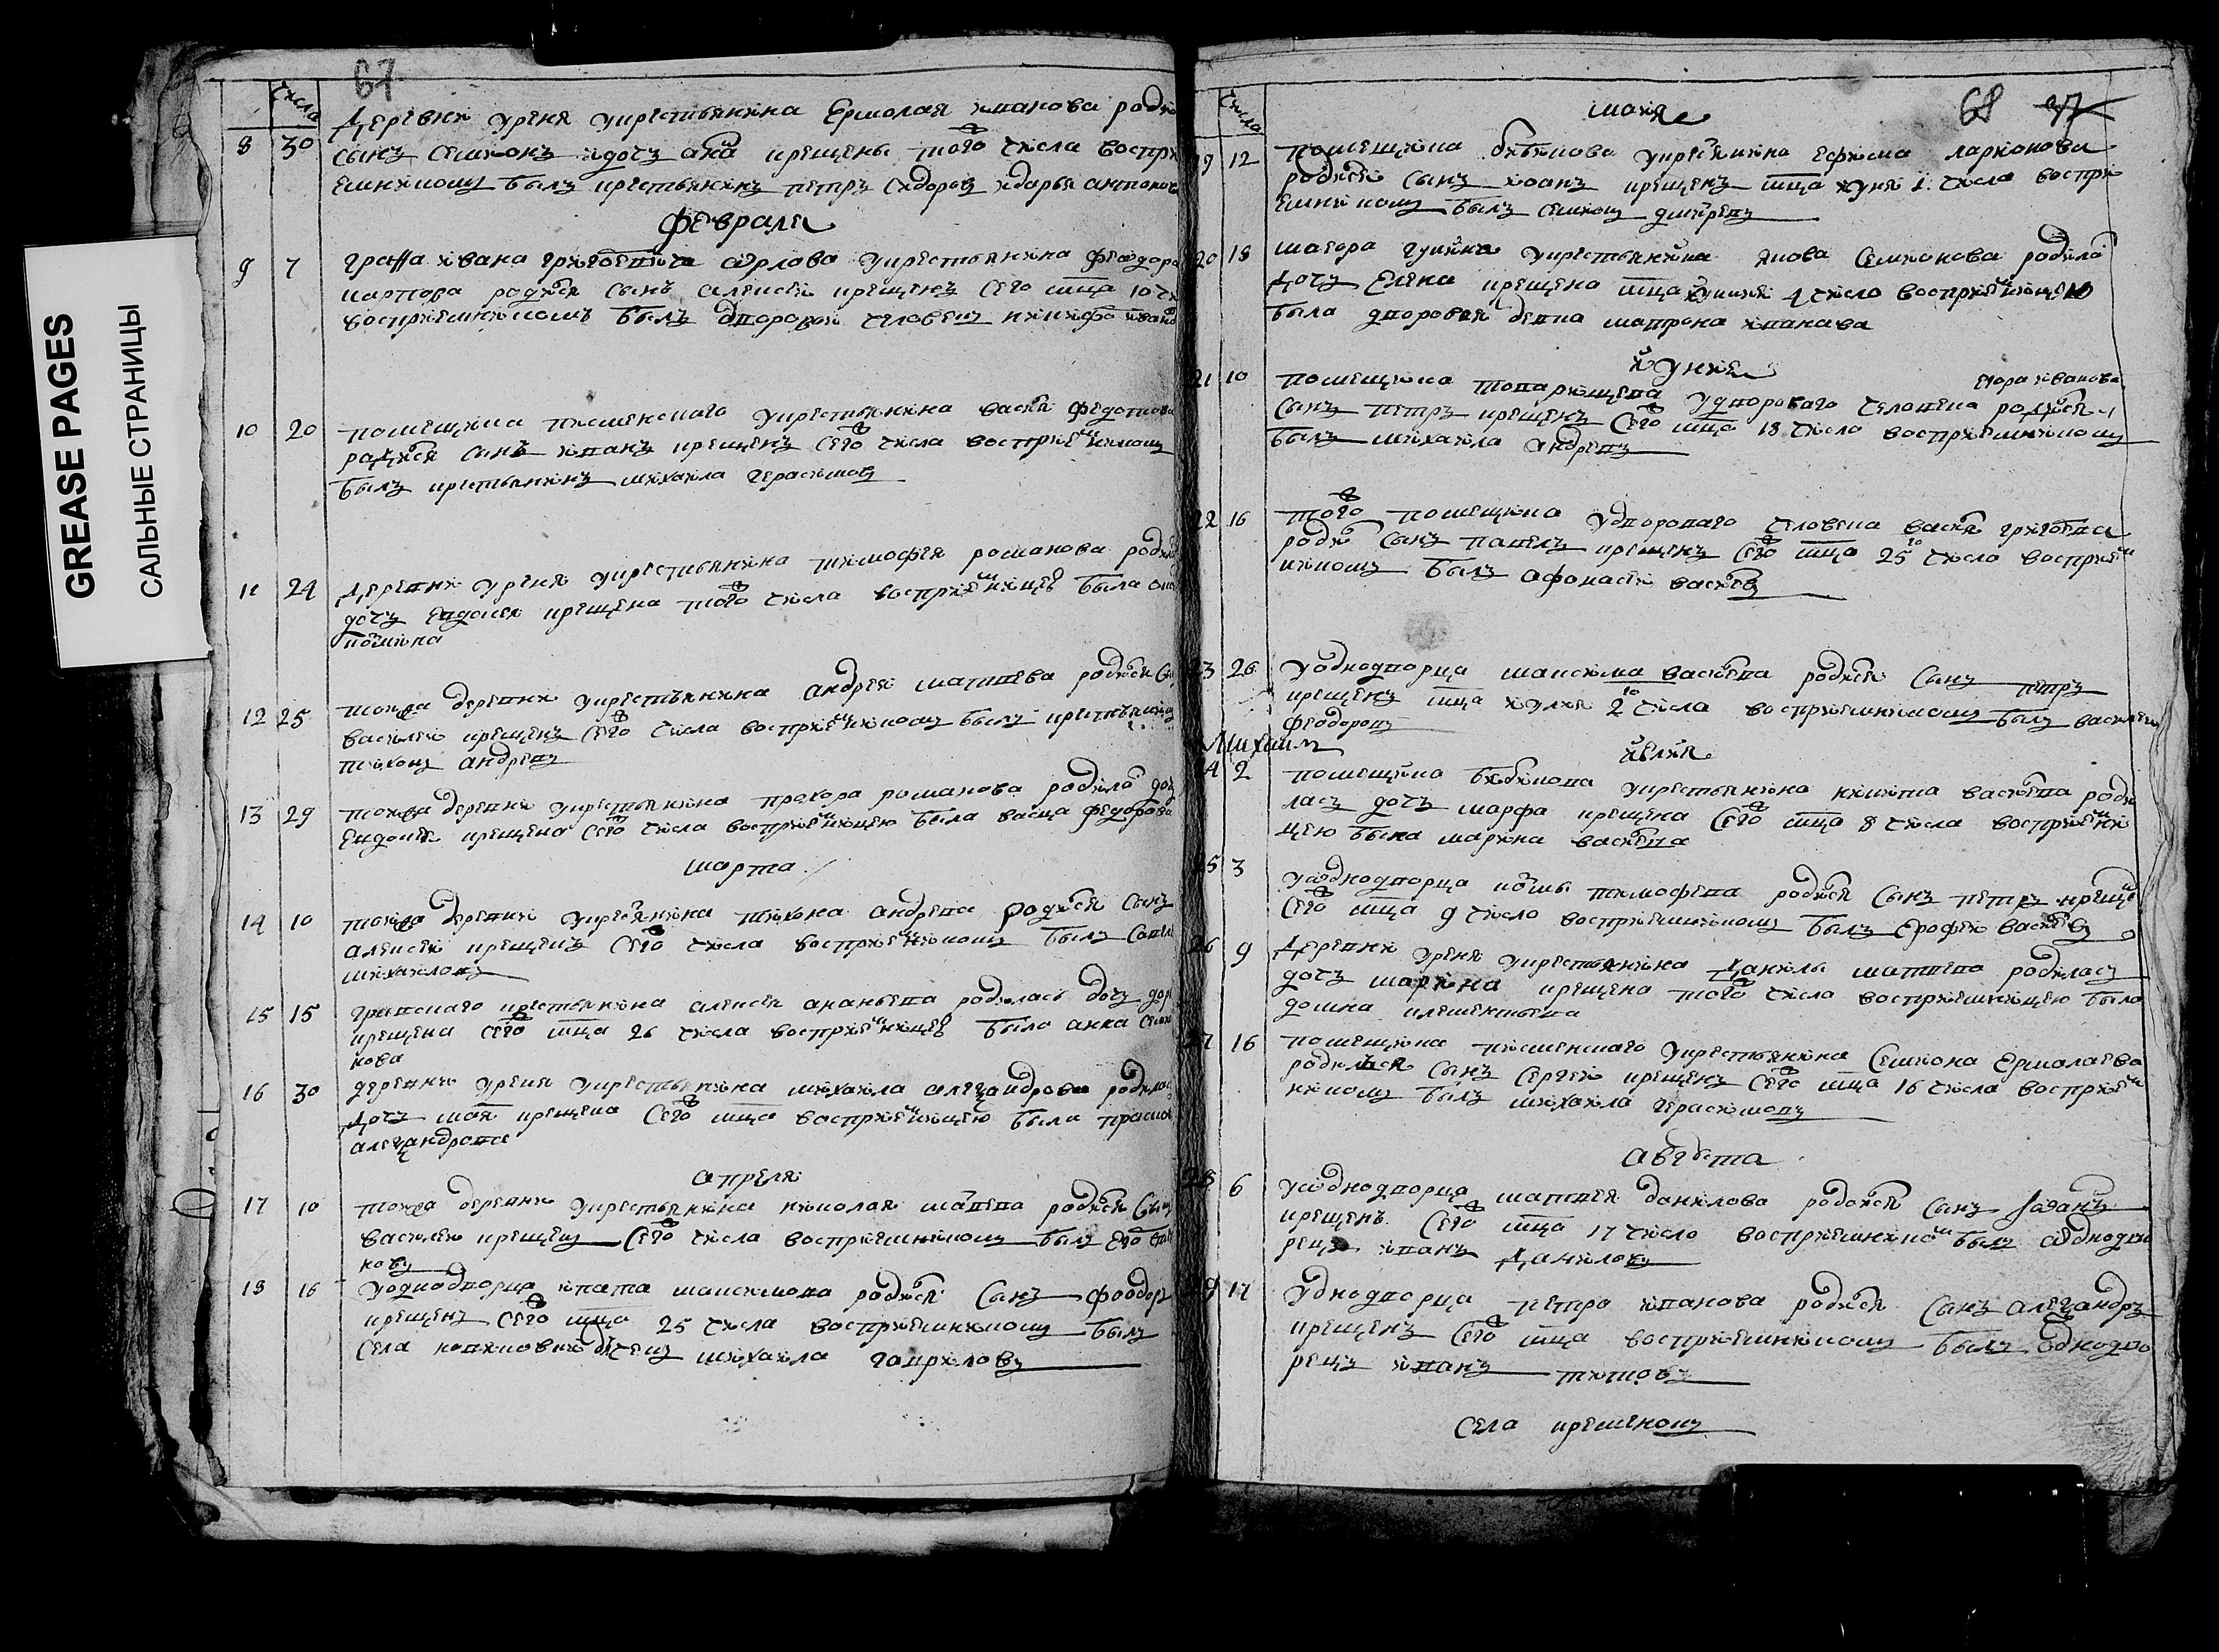 GREASE PAGES
САЛЬНЫЕ СТРАНИЦЫ
67
числа
деревни Уреня укрестьянина Ермолая иванова роди
8 30 сынъ Симионъ идочъ ана крещены того числа воспри
емникомъ былъ крестьянинъ петръ сидоровъ идарья антонов
февраля
9 7 графа ивана григоевича орлова укрестьянина феодора
карпова родися сынъ алексей крещенъ сего мца 10 чи
восприемникомъ былъ дворовой человекъ никифо ивано
10 20 помещика укрестьянина васия федотова
родися сынъ иванъ крещенъ сего числа восприемникомъ
былъ крестьянинъ михаила герасимовъ
11 24 деревни уреня укрестьянина тимофея романова роди
дочъ евдокея крещена того числа восприемницею была
12 25 тоижа деревни укрестьянина андрея матвева родися
василей крещенъ сего числа восприемникомъ былъ крестьянинъ
тихонъ андревъ
13 29 тоижа деревни укрестьянина прохора романова родила доч
евдокия крещена сего числа восприемницею была васца федорова
марта
14 10 тоижа деревни укресянина тихона андрева родися сынъ
алексей крещенъ сего числа восприемникомъ былъ
михаиловъ
15 15 графского крестьянина алексея ананьева родилась дочъ
крещена сего мца 26 числа восприемницею была анна семи
нова
16 30 деревни уреня укрестьянина михаила алеѯандрова родилас
дочъ крещена сего мца восприемницею была праско
алеѯандрова
апреля
17 10 тоижа деревни укрестьянина николая родися сынъ
василей крещенъ сего числа восприемникомъ былъ
18 16 уоднодворца ипата максимова родися сынъ феодоръ
крещенъ сего мца 25 числа восприемникомъ былъ
села михаила гаврилавъ
68 37
числа
майя
19 12 помещика бибикова укресянина ефима ларионова
родися сынъ иоанъ крещенъ мца июня 1 числа воспри
емникомъ былъ симионъ дмиревъ
20 18 маеора укрестьянина якова симионова родила
дочъ Елена крещена мца июния 4 число восприемницею
была дворовая девка матрона иванава
июния
21 10 помещика удворового человека егора иванова родися
сынъ петръ крещенъ сего мца 18 число восприемникомъ
былъ михаила андревъ
22 16 того помещика удворового человека васия григоева
роди сынъ павелъ крещенъ сего мца 25го числа восприем
никомъ былъ афонасей васиевъ
23 26 уоднодворца максима васиева родися сынъ петръ
крещенъ мца иулия 2го числа восприемникомъ былъ василей
феодоровъ
Михаилъ
июлия
24 2 помещика бибикова укрестьянина никиты васиева роди
лась дочъ марфа крещена сего мца 8 числа восприемни
цею была марина васиева
25 3 уоднодворца козьмы тимофева родися сынъ петръ крещен
сего мца 9 число восприемникомъ былъ Ерофей васиевъ
26 9 деревни уреня укрестьянина данилы матвева родилась
дочъ марина крещена того числа восприемницею была
домна клементьева
27 16 помещика укрестьянина симиона ермалаева
родилъся сынъ сергей крещенъ сего мца 16 числа восприем
никомъ былъ михаила герасимовъ
августа
28 6 уоднодворца матвея данилова родися сынъ
крещенъ сего мца 17 число восприемником былъ однодво
рецъ иванъ даниловъ
29 17 уднодворца петра иванова родися сынъ алеѯандръ
крещенъ сего мца восприемникомъ былъ однодво
рецъ иванъ титовъ
села